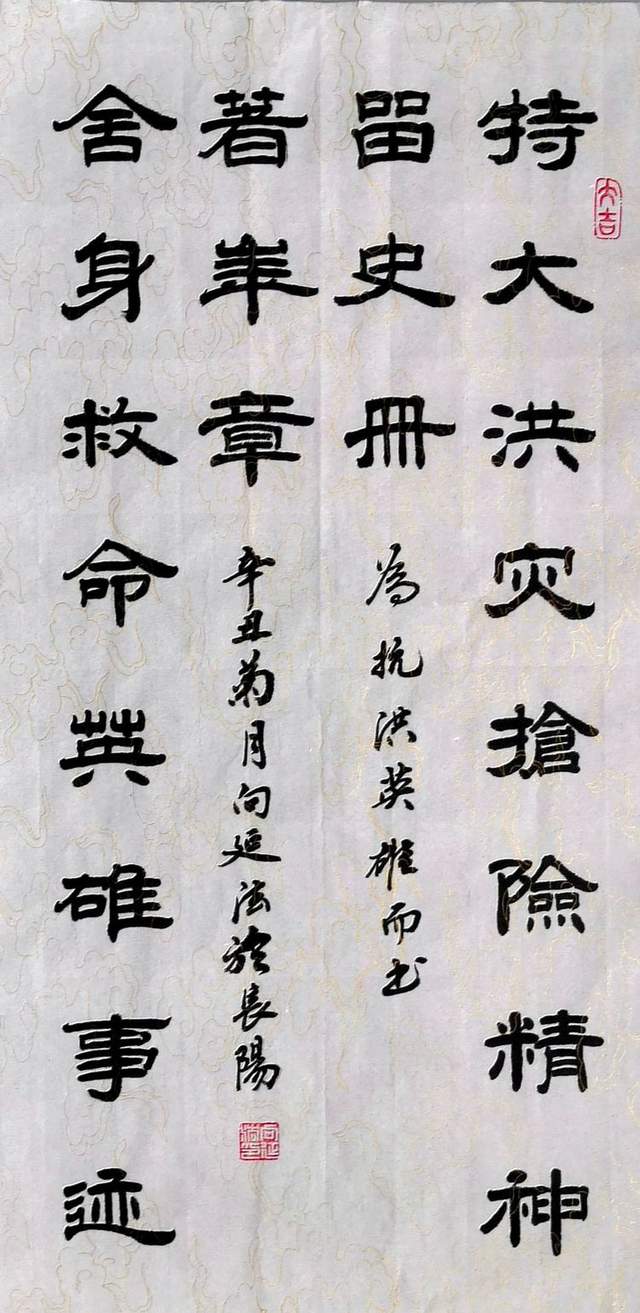 大吉
特大洪灾搶險精神
留史冊
為抗洪英雄而书
舍身救命英雄事迹
著年章
辛丑菊月向延法於長陽